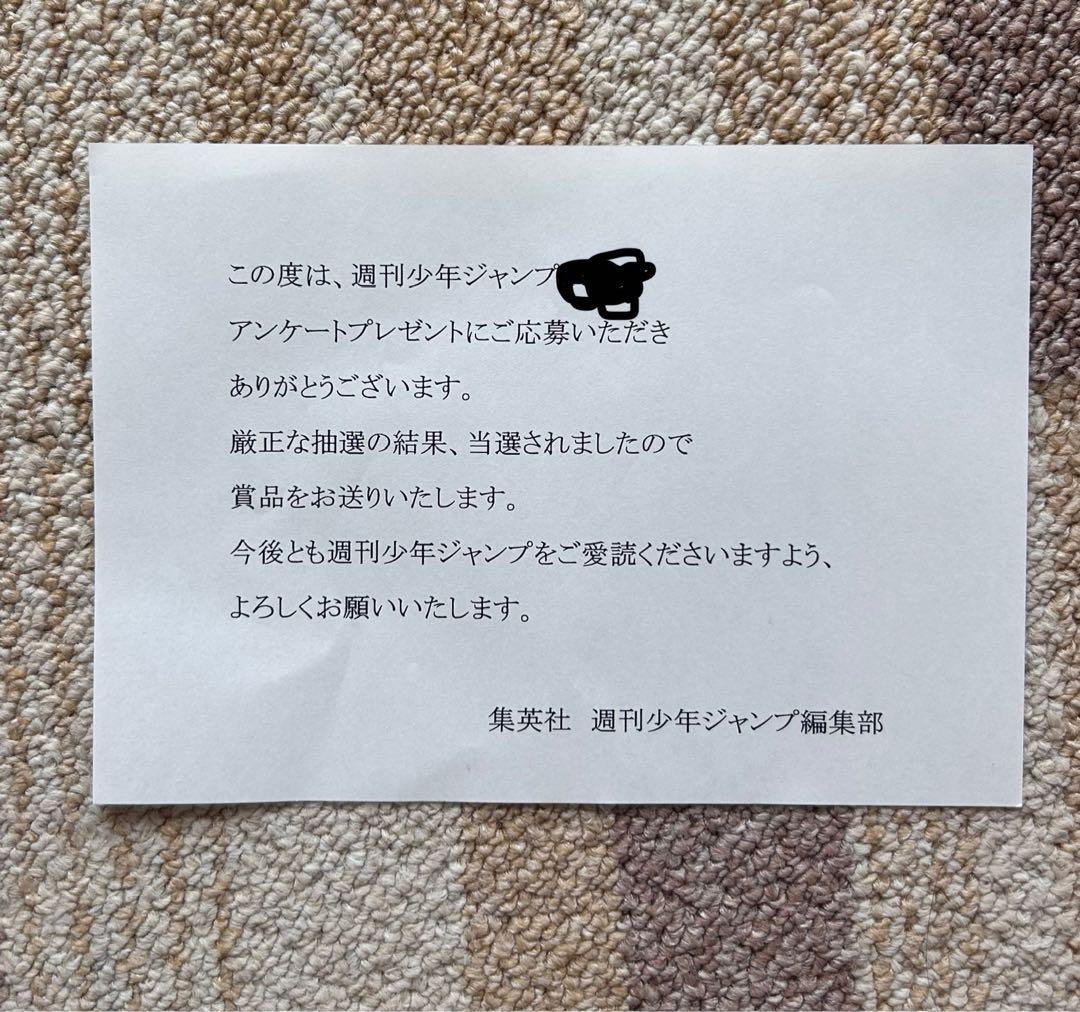 この度は、週刊少年ジャンプ
アンケートプレゼントにご応募いただき
ありがとうございます。
厳正な抽選の結果、当選されましたので
賞品をお送りいたします。
今後とも週刊少年ジャンプをご愛読くださいますよう、
よろしくお願いいたします。
集英社　週刊少年ジャンプ編集部